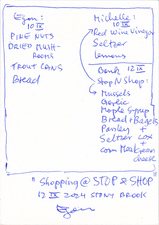 Egon:
10 IX
PINE NUTS
DRIED MUSH-
ROOMS
TROUT CANS
Bread
Michelle:
10 IX
Red Wine Vinegar
Seltzer
Lemons
Bank 12 IX
Stop N Shop:
Mussels
Garlic
Maple Syrup
Bread + Bagels
Parsley +
Seltzer Lox +
cheese
"Shopping @ STOP & SHOP"
12 IX 2024 STONY BROOK
Egon